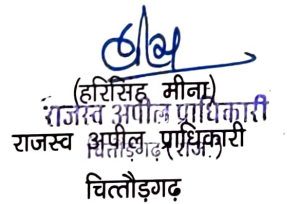 (हरिसिंह मीना)
राजस्व अपील प्राधिकारी
राजस्व अपील प्राधिकारी
चित्तौड़गढ़ (राज.)
चित्तौड़गढ़